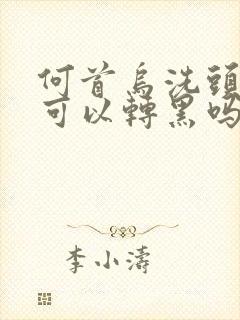 何首烏洗頭
可以轉黑吗
李小濤